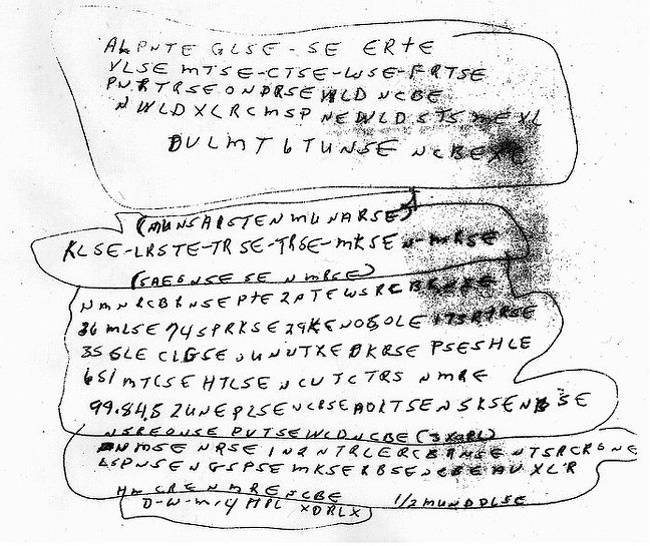 ALPNTE GLSE-SE ERTE
VLSE MTSE-CTSE-WSE-FRTSE
PNRTRSEONDRSEWLD NCBE
NWLDXLRCMSP NEWLDSTSMEXL
DULMT6TUNSE NCBEXC
(MUNSARSTENMUNARSE)
KLSE-LRSTE-TRSE-TRSE-MKSEN-MRSE
(SAEGNSESE NMRSE)
NMNRCBRNSEPTE2PTEWSRCBRNSE
36MLSE74SPRKSE29KENOSOLE173RTRSE
35GLE CLGSE UNUTXE DKRSE PSESHLE
651MTCSE HTLSE NCUTCTRS NMRE
99.84.5 2UNEPLSE NCRSEAOLTSENSKSENBSE
NSREONSE PVTSEWLDNCBE (3XORL)
NMSE NRSE IN2NTRLERCBRNSE NTSRCRONE
LSPNSENGSPSE MKSERBSE NCBE AUXLR
HM CRE NMRE NCBE 1/2MUNDDLSE
D-W-M-4 HPL XDRLX